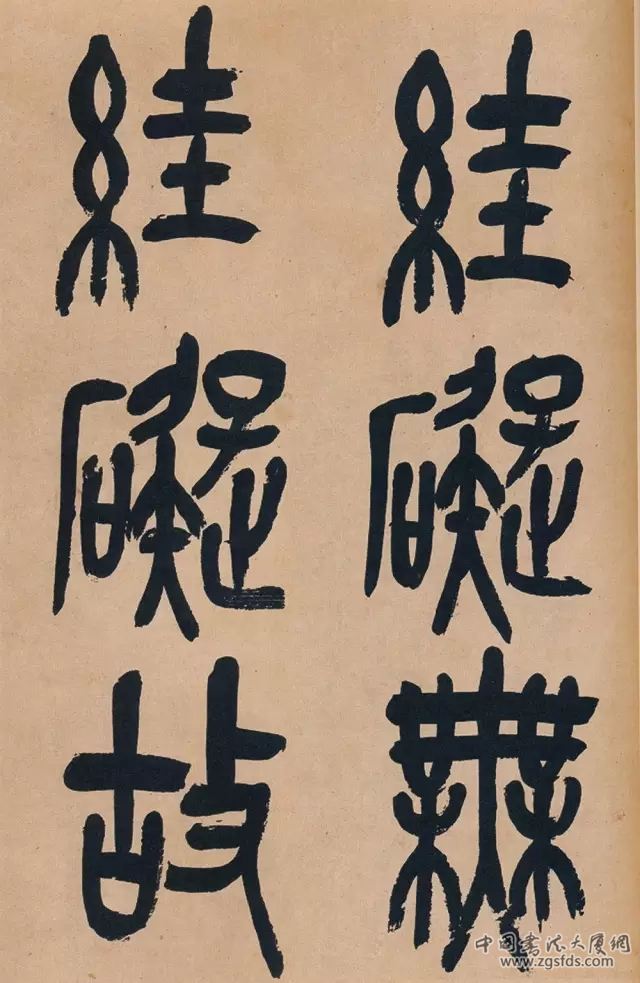 絓礙無
絓礙故
中国书法大厦網
www.zgsfds.com